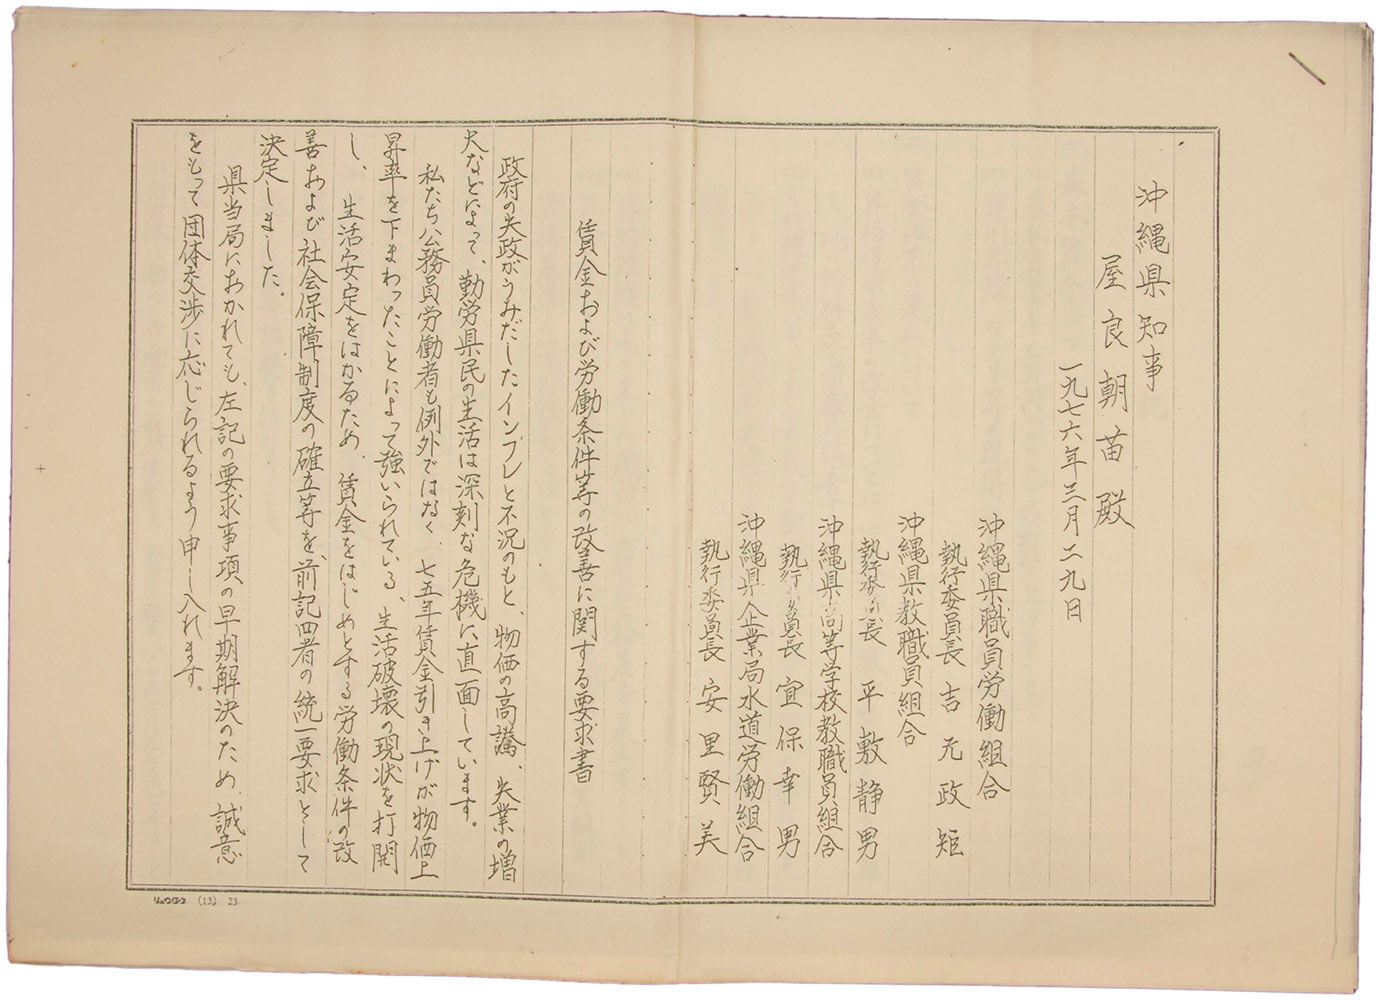 沖縄県知事
屋良朝苗殿
一九七六年三月二九日
沖縄県職員労働組合
執行委員長 吉元政矩
沖縄県教職員組合
執行委員長 平敷静男
沖縄県高等学校教職員組合
執行委員長 宜保幸男
沖縄県企業局水道労働組合
執行委員長 安里賢美
賃金および労働条件等の改善に関する要求書
政府の失政がうみだしたインフレと不況のもと、物価の高騰、失業の増
大などによって、勤労県民の生活は深刻な危機に直面しています。
私たち公務員労働者も例外ではなく、七五年賃金引き上げが物価上
昇率を下まわったことによって強いられている、生活破壊の現状を打開
し、生活安定をはかるため、賃金をはじめとする労働条件の改
善および社会保障制度の確立等を、前記四者の統一要求として
決定しました。
県当局におかれても、左記の要求事項の早期解決のため、誠意
をもって団体交渉に応じられるよう申し入れます。
リュウタン (13) 23